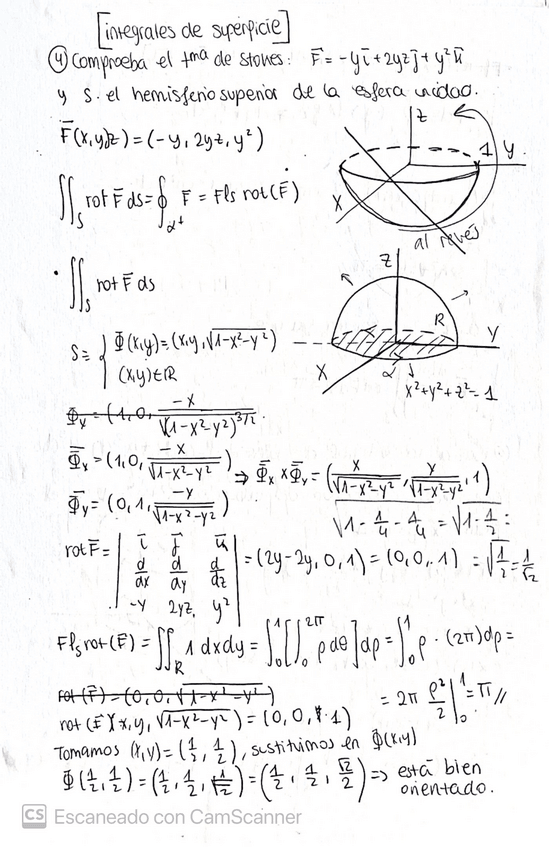 [integrales de superficie]
④ Comprueba el tma de Stokes: F̄ = -yī + 2yzj̄ + y²k̄
y S. el hemisferio superior de la esfera unidad.
F̄(x,y,z) = (-y, 2yz, y²)
z
1 y.
x
al revés
∬_S rot F̄ ds = ∮_α⁺ F̄ = Fls rot(F̄)
z
R
y
x
α
x²+y²+z²=1
· ∬_S rot F̄ ds
S ≡ { Φ̄(x,y) = (x,y, √(1-x²-y²))
(x,y) ∈ R
Φ̄x = (1,0, -x/√(1-x²-y²)^3/2).
Φ̄x = (1,0, -x/√(1-x²-y²))
Φ̄y = (0,1, -y/√(1-x²-y²))
⇒ Φ̄x × Φ̄y = (x/√(1-x²-y²), y/√(1-x²-y²), 1)
√(1-1/4-1/4) = √(1-1/2) =
= √(1/2) = 1/√2
rot F̄ = | ī j̄ k̄
d/dx d/dy d/dz
-y 2yz y² | = (2y-2y, 0, 1) = (0,0,1)
Fls rot(F̄) = ∬_R 1 dxdy = ∫₀¹[∫₀^2π ρ dθ] dρ = ∫₀¹ ρ · (2π) dρ =
= 2π ρ²/2 |₀¹ = π //
rot(F̄) = (0,0, √(1-x²-y²))
rot(F̄)(x,y, √(1-x²-y²)) = (0,0, 1)
Tomamos (x,y) = (1/2, 1/2), sustituimos en Φ̄(x,y)
Φ̄(1/2, 1/2) = (1/2, 1/2, 1/√2) = (1/2, 1/2, √2/2) => está bien
orientado.
CS Escaneado con CamScanner